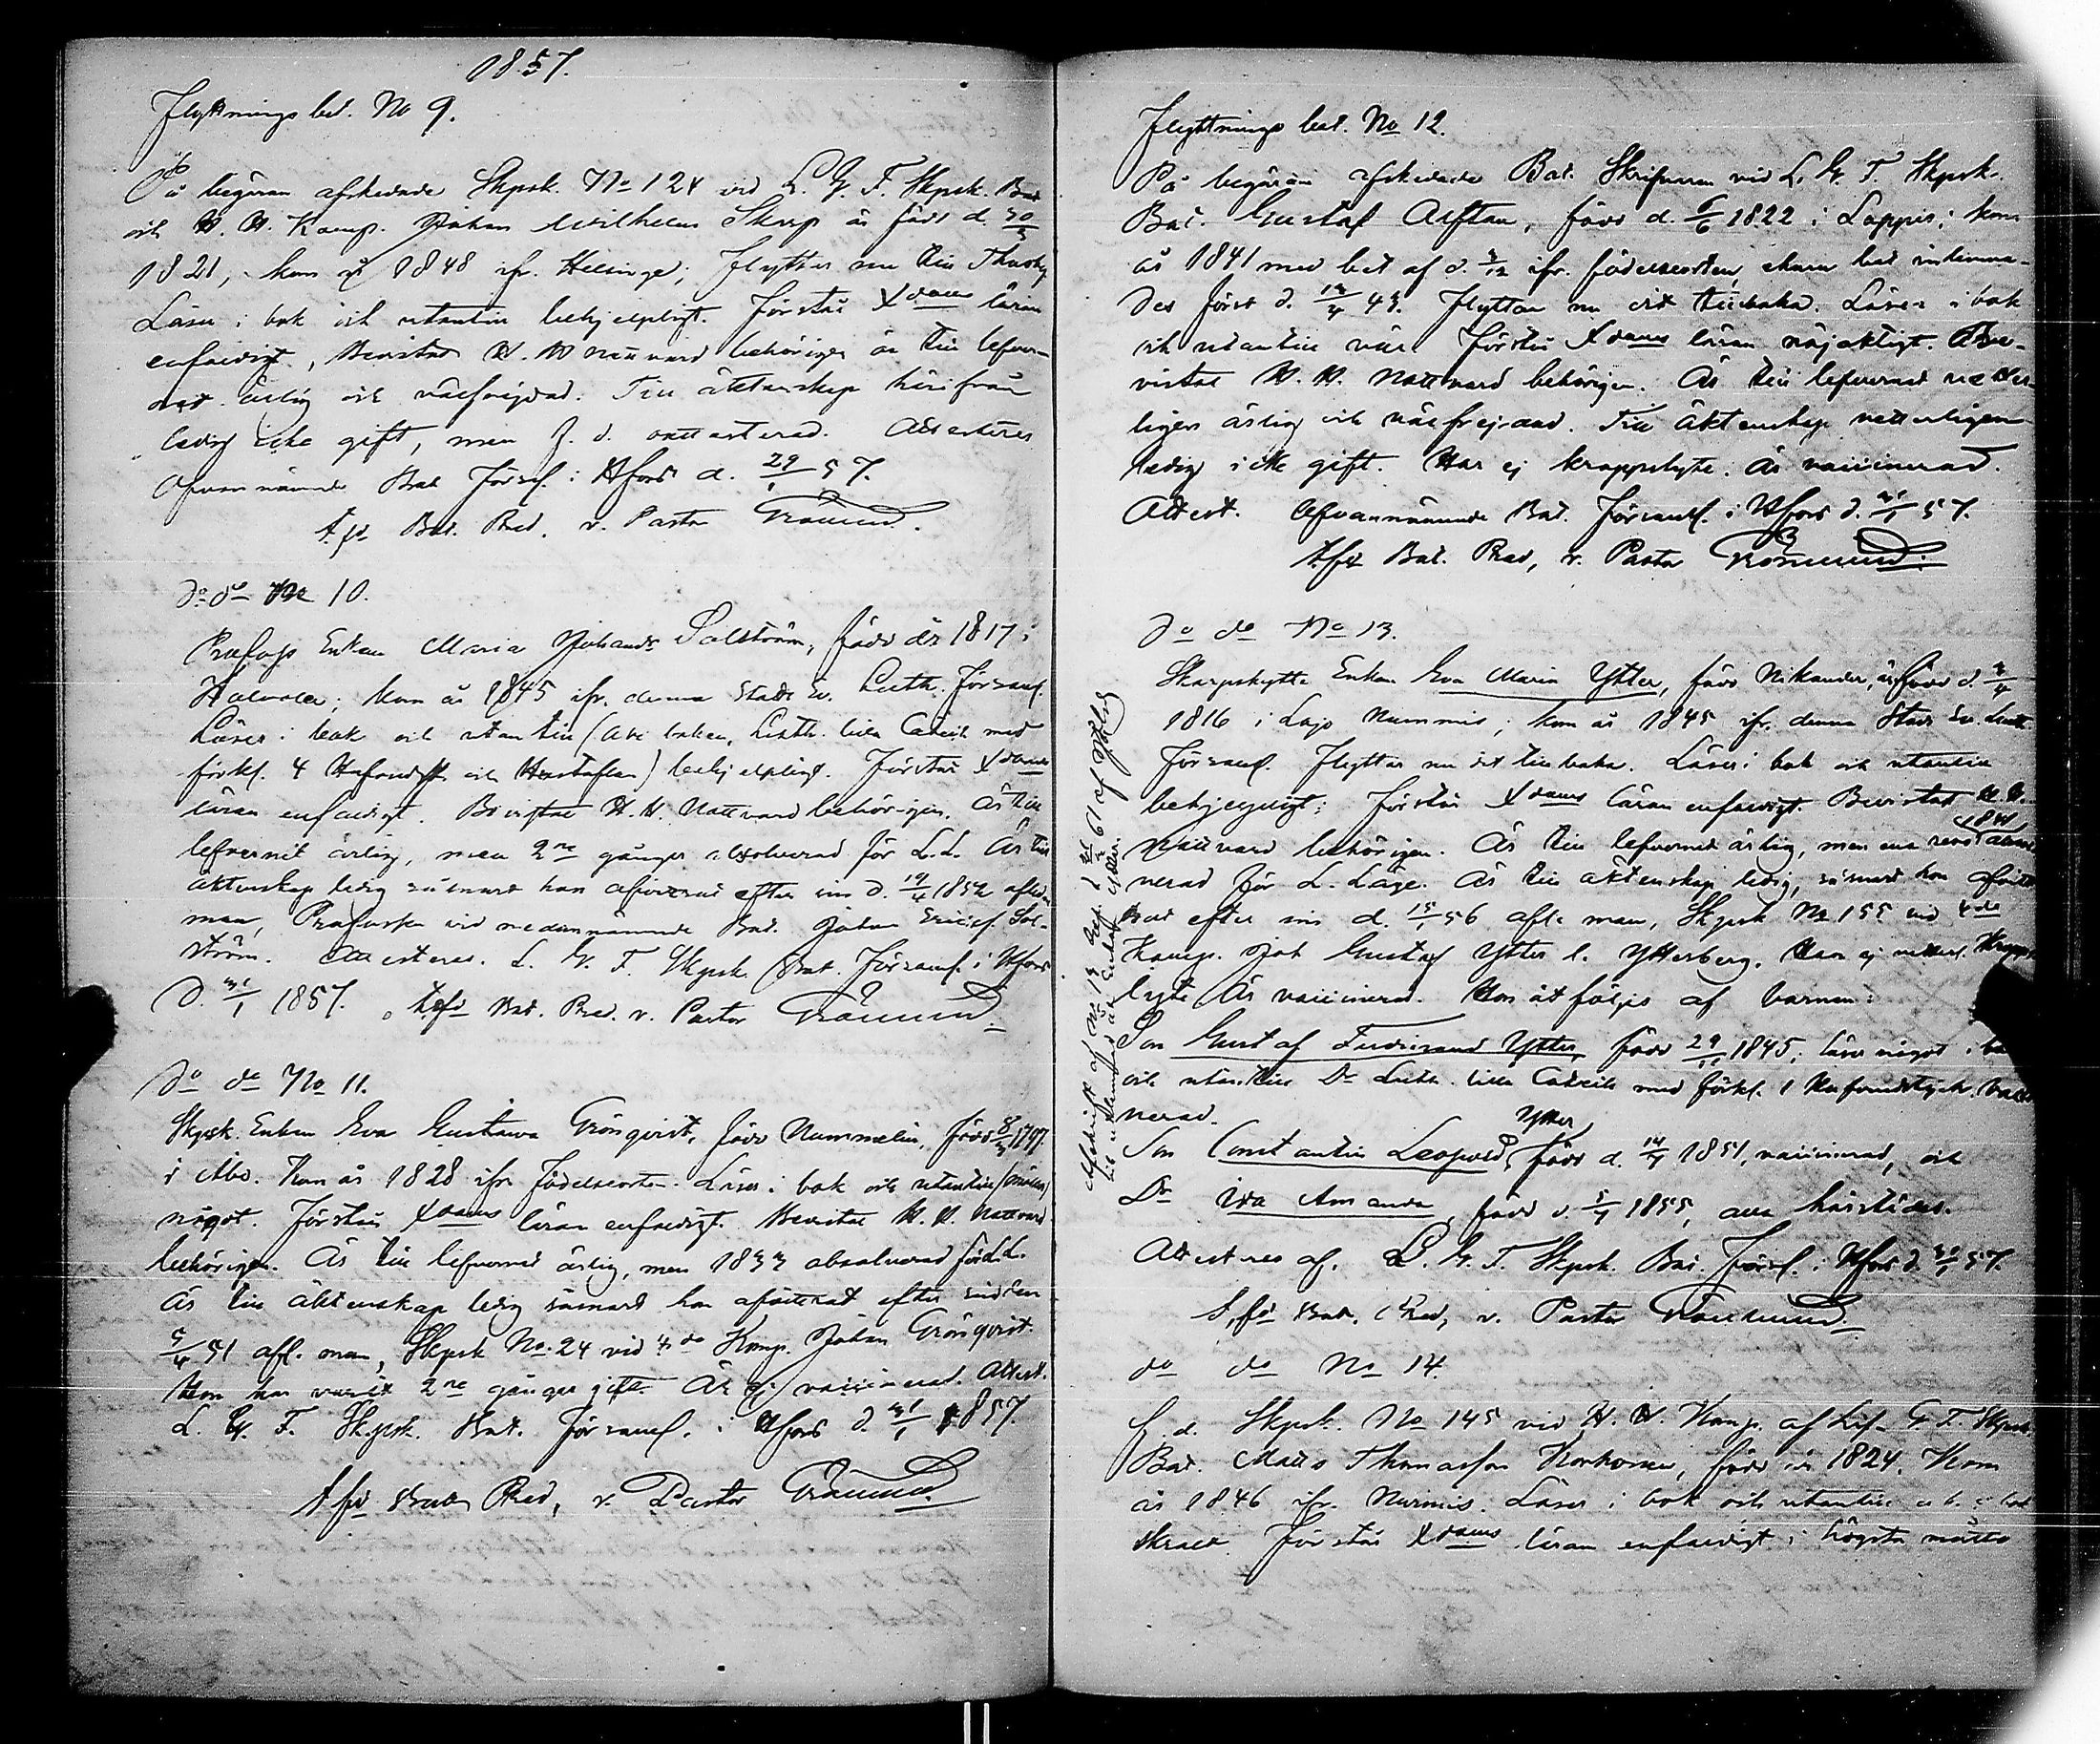 1857.
Flyttnings bet. No 9.
På begäran afskedade Skpsk. No 124 vid L. G. F. Skpsk. Bat
och H. H. Komp. Johan Wilhelm Skarp är född d. 30/3
1821, kom år 1848 ifr. Helsinge; flyttar nu till Thusby
Läser i bok och utantill behjelpligt. Förstår Xdoms läran
enfaldigt, Bevistat H. H. Nattvard behörigen är till lefver-
net ärlig och välfrejdad. Till äktenskap härifrån
ledig icke gift, men f. d. Attesteres
Ofvannämnde Bat Försl. i Hfors d. 29/1 57.
t. f. Bat. Pred. v. Pastor Grönlund.
do do No 10.
Profoss Enkan Maria Johansdr Salström, född år 1817 i
kom år 1845 ifr. denna Stads Ev. Luth. Församl.
Läser i bok och utantill (Abc boken, Luth. lilla Cateches med
förkl. 4 Hufvudst. och Hustaflan) behjelpligt. Förstår Xdoms
läran enfaldigt. Bevistat H. H. Nattvard behörigen. Är till
lefvernet ärlig, men 2ne gånger absolverad för L.L. Är till
äktenskap ledig såsom hon afvittrat efter sin d. 19/4 1852 aflidne
man, Profossen vid nedannämnde Bat. Johan Ericsf. Sal-
ström. Attesteres. L. G. F. Skpsk. Bat. Församl. i Hfors
d. 31/1 1857. t. f. Bat. Pred. v. Pastor Grönlund.
do do No 11.
Skpsk. Enkan Eva Gustava Grönqvist, född Nummelin, född 8/3 1797
i Åbo. Kom år 1828 ifr. födelseorten. Läser i bok och utantill
något. Förstår Xdoms läran enfaldigt. Bevistat H. H. Nattvard
behörigen. Är till lefvernet ärlig, men 1833 absolverad för L.L.
Är till äktenskap ledig såsom hon afvittrat efter sin den
5/4 51 afl. man, Skpsk No 24 vid 4de Komp. Johan Grönqvist.
Hon har varit 2ne gånger gift. Är ej vaccinerad. Attest.
L. G. F. Skpsk. Bat. Församl. i Hfors d. 31/1 1857.
t. f. Bat. Pred, v. Pastor Grönlund.
Flyttnings bet. No 12.
På begäran afskedade Bat. Skrifvaren vid L. G. F. Skpsk.
Bat. Gustaf Alftan, född d. 6/6 1822 i Lappis; kom
år 1841 med bet af d. 3/12 ifr. födelseorten, denna bet inlemna-
des först d. 13/4 43. Flyttar nu dit tillbaka. Läser i bok
och utantill väl. Förstår Xdoms läran nöjaktigt. Be-
vistat H. H. Nattvard behörigen. Är till lefvernet vetter-
ligen ärlig och välfrejdad. Till äktenskap vetterligen
ledig icke gift. Har ej kroppslyte. Är vaccinerad.
Attest. Ofvannämnde Bat. Församl. i Hfors d. 31/1 57.
t. f. Bat. Pred, v. Pastor Grönlund.
do do No 13.
Skarpskytte Enkan Eva Maria Ytter, född Nikander, är född d. 3/4
1816 i Lojo Nummis; kom år 1845 ifr. denna Stads Ev. Luth.
Församl. Flyttar nu dit tillbaka. Läser i bok och utantill
behjelpligt; förstår Xdoms läran enfaldigt. Bevistat H. H.
Nattvard behörigen. Är till lefvernet ärlig, men 1841
för L. Läge. Är till äktenskap ledig, såsom hon afvitt-
rat efter sin d. 15/1 56 afl. man, Skpsk No 155 vid 4de
Komp. Joh Gustaf Ytter l. Ytterberg. Har ej vetterl. kropps-
lyte. Är vaccinerad. Hon åtföljes af barnen:
Son Gustaf Ferdinand Ytter, född 29/1 1845; läser något i bok
och utantill Dr Luth. lilla Cateches med förkl. 1 Hufvudstyck. Vacci-
nerad.
Son Constantin Leopold Ytter, född d. 14/9 1851, vaccinerad, och
Dr Ida Amanda, född d. 5/9 1855, alla härstädes.
Attesteres af. L. G. F. Skpsk. Bat. Försl. i Hfors d. 30/1 57.
t. f. Bat. Pred, v. Pastor Grönlund.
do do No 14.
f. d. Skpsk. No 145 vid H. H. Komp. af Lif. G. F. Skpsk.
Bat. Matts Thomasson Korhonen, född år 1824. Kom
år 1846 ifr. Nurmis. Läser i bok och utantill
Förstår Xdoms läran enfaldigt i högsta måtto